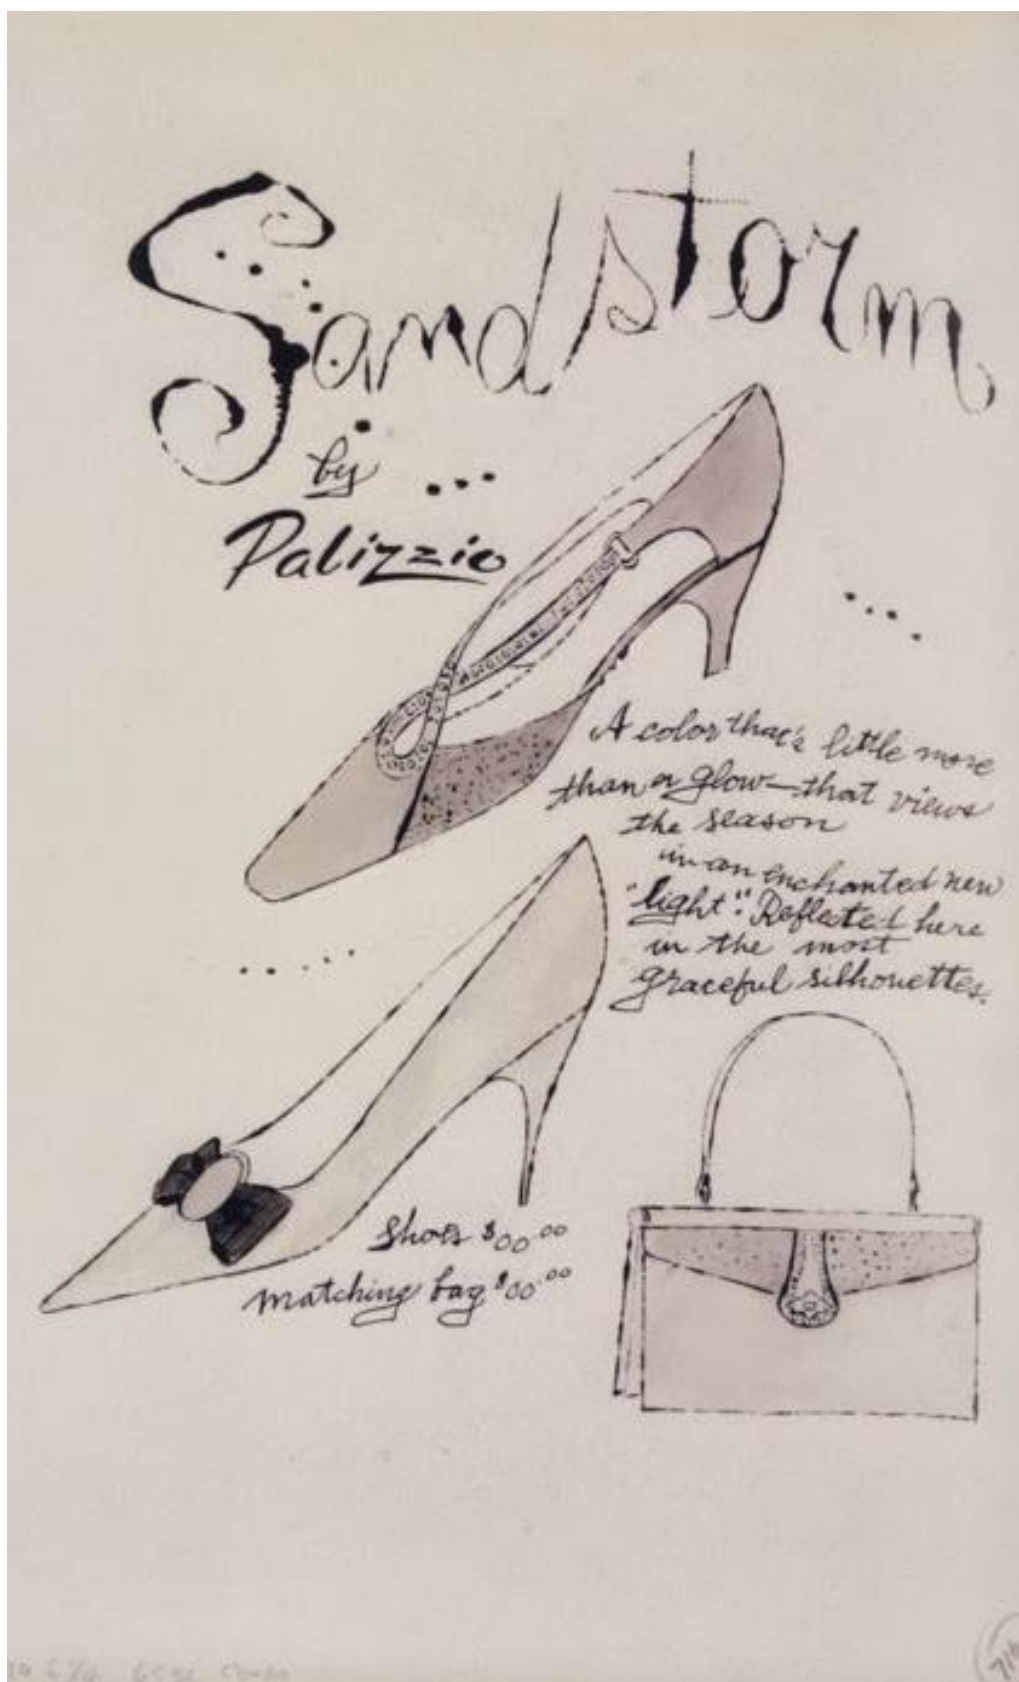 Sandstorm
by
Palizzio
A color that's little more
than a glow—that views
the season
in an enchanted new
"light". Reflected here
in the most
graceful silhouettes.
Shoes $00.00
matching bag $00.00